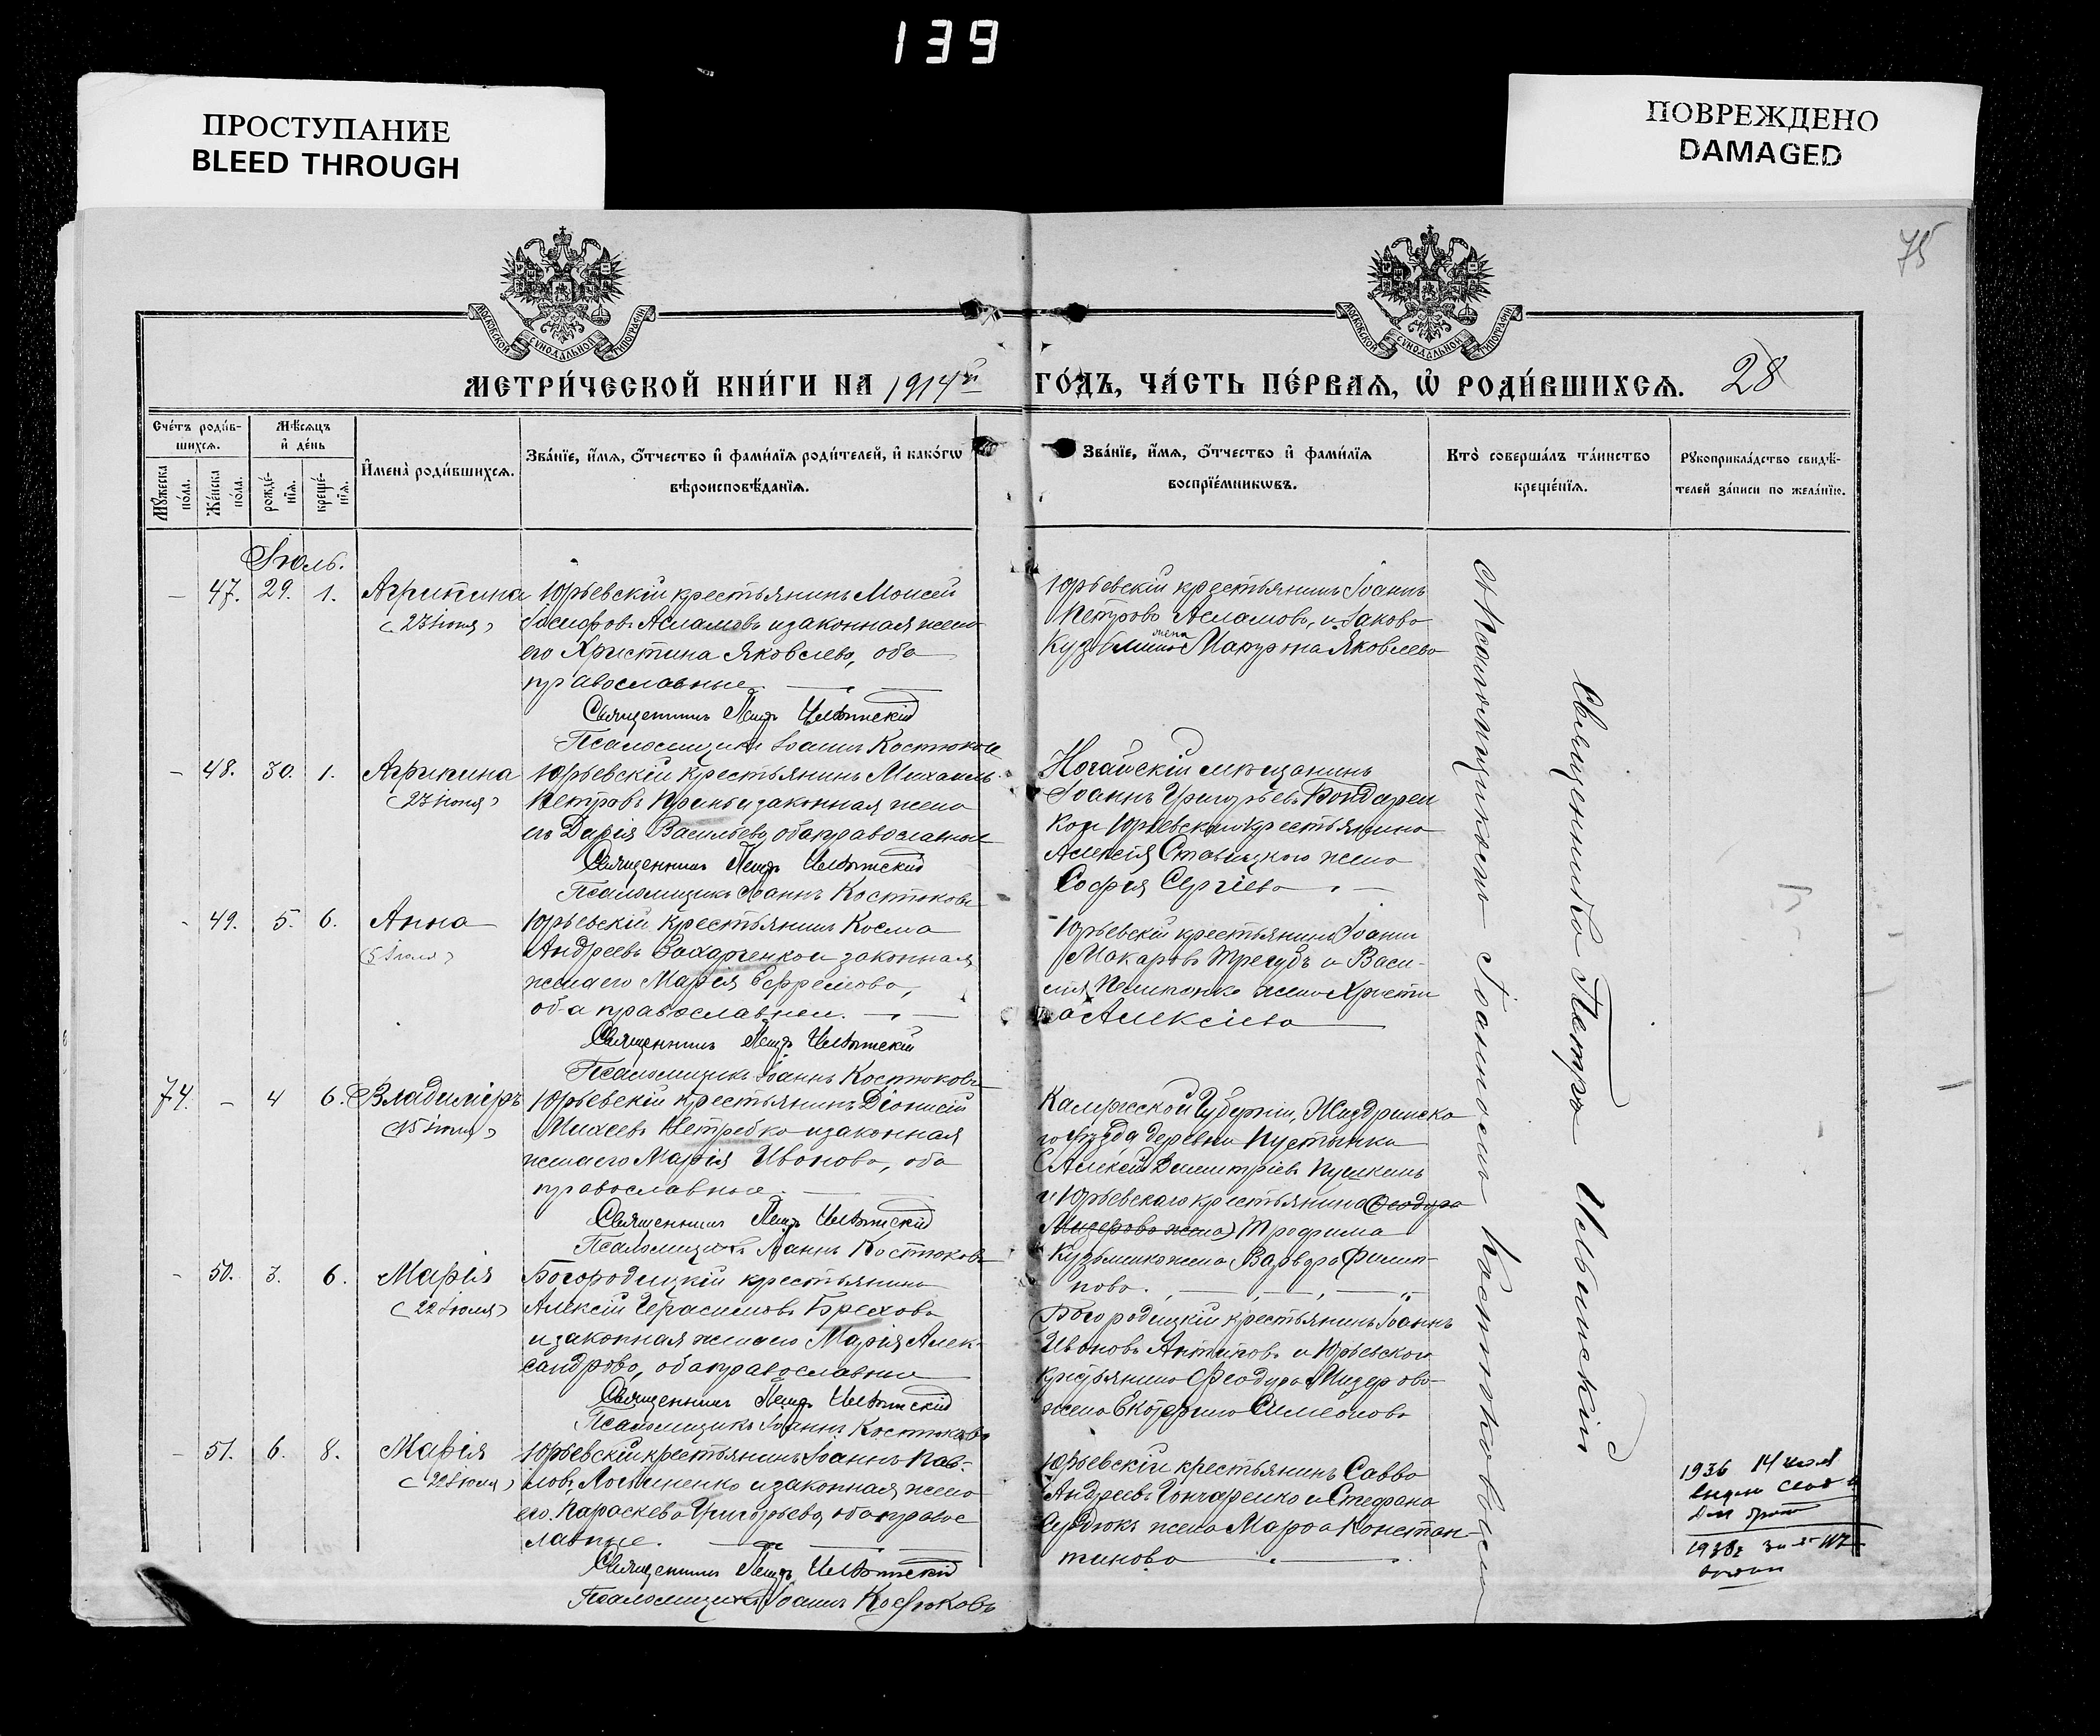 139
ПРОСТУПАНИЕ
BLEED THROUGH
ПОВРЕЖДЕНО
DAMAGED
75
МОСКОВСКОЙ СУНОДАЛЬНОЙ ТИПОГРАФІИ
МОСКОВСКОЙ СУНОДАЛЬНОЙ ТИПОГРАФІИ
МЕТРИ́ЧЕСКОЙ КНИ́ГИ НА 1914й ГО́ДЪ, ЧА́СТЬ ПЕ́РВАѦ, Ѡ҆ РОДИ́ВШИХСѦ. 28
Сче́тъ роди́в-
шихсѧ.
Мѣ́сѧцъ
и҆ де́нь
Мꙋ́жеска по́ла.
Же́нска по́ла.
рожде́-
нїѧ.
креще́-
нїѧ.
И҆мена̀ роди́вшихсѧ.
Зва́нїе, и҆́мѧ, ѻ҆́тчество и҆ фами́лїѧ роди́телей, и҆ како́гѡ
вѣроисповѣ́данїѧ.
Зва́нїе, и҆́мѧ, ѻ҆́тчество и҆ фами́лїѧ
воспрїе́мникѡвъ.
Кто̀ соверша́лъ та́инство
креще́нїѧ.
Рꙋкоприкла́дство свидѣ́-
телей за́писи по жела́нїю.
Іюль.
— 47. 29. 1. Агрипина
(23 іюня)
Юрьевскій крестьянинъ Моисей
Іосифовъ Асламовъ и законная жена
его Христина Яковлева, оба
православные.
Священникъ Петръ Ильинскій
Псаломщикъ Іоаннъ Костюковъ
Юрьевскій крестьянинъ Іоаннъ
Петровъ Асламовъ, и Іакова
жена Марѳа Яковлева
— 48. 30. 1. Агрипина
(23 іюня)
Юрьевскій крестьянинъ Михаилъ
Петровъ и законная жена
его Дарія Васильева, оба православные
Священникъ Петръ Ильинскій
Псаломщикъ Іоаннъ Костюковъ
Ногайскій мѣщанинъ
Іоаннъ Григорьевъ Бондарен
ко и Юрьевскаго крестьянина
Алексія Ставицкого жена
Софія Сергіева
- 49. 5. 6. Анна
(5 іюля)
Юрьевскій крестьянинъ Косма
Андреевъ Захарченко и законная
жена его Марія Ефремова,
оба православные.
Священникъ Петръ Ильинскій
Псаломщикъ Іоаннъ Костюковъ
Юрьевскій крестьянинъ Іоаннъ
Макаровъ Трегубъ и Васи-
лія жена Христи
на Алексіева
74. — 4 6. Владиміръ
(15 іюля)
Юрьевскій крестьянинъ Діонисій
Михеевъ Нетребко и законная
жена его Марія Иванова, оба
православные.
Священникъ Петръ Ильинскій
Псаломщикъ Іоаннъ Костюковъ
Калужской Губерніи, Жиздринска
го уѣзда деревни Пустынка
Алексій Димитріевъ
и Юрьевскаго крестьянина (Ѳеодора
Мизерова жена) Трофима
Кузьменко жена Варвара Филип-
пова.
- 50. 3. 6. Марія
(22 іюля)
Богородицкій крестьянинъ
Алексій Герасимовъ Бреховъ
и законная жена его Марія Алек-
сандрова, оба православные
Священникъ Петръ Ильинскій
Псаломщикъ Іоаннъ Костюковъ
Богородицкій крестьянинъ Іоаннъ
Ивановъ Антиповъ и Юрьевскаго
крестьянина Ѳеодора Мизерова
жена Екатерина Симеонова
- 51. 6. 8. Марія
(22 іюля)
Юрьевскій крестьянинъ Іоаннъ Пав-
ловъ и законная жена
его Параскева Григорьева, оба правос
лавные.
Священникъ Петръ Ильинскій
Псаломщикъ Іоаннъ Костюковъ
Юрьевскій крестьянинъ Савва
Андреевъ Гончаренко и Стефана
Сердюкъ жена Марѳа Констан-
тинова
Священникъ Петръ Ильинскій
съ псаломщикомъ Іоанномъ Костюковымъ
1936 14
1938г